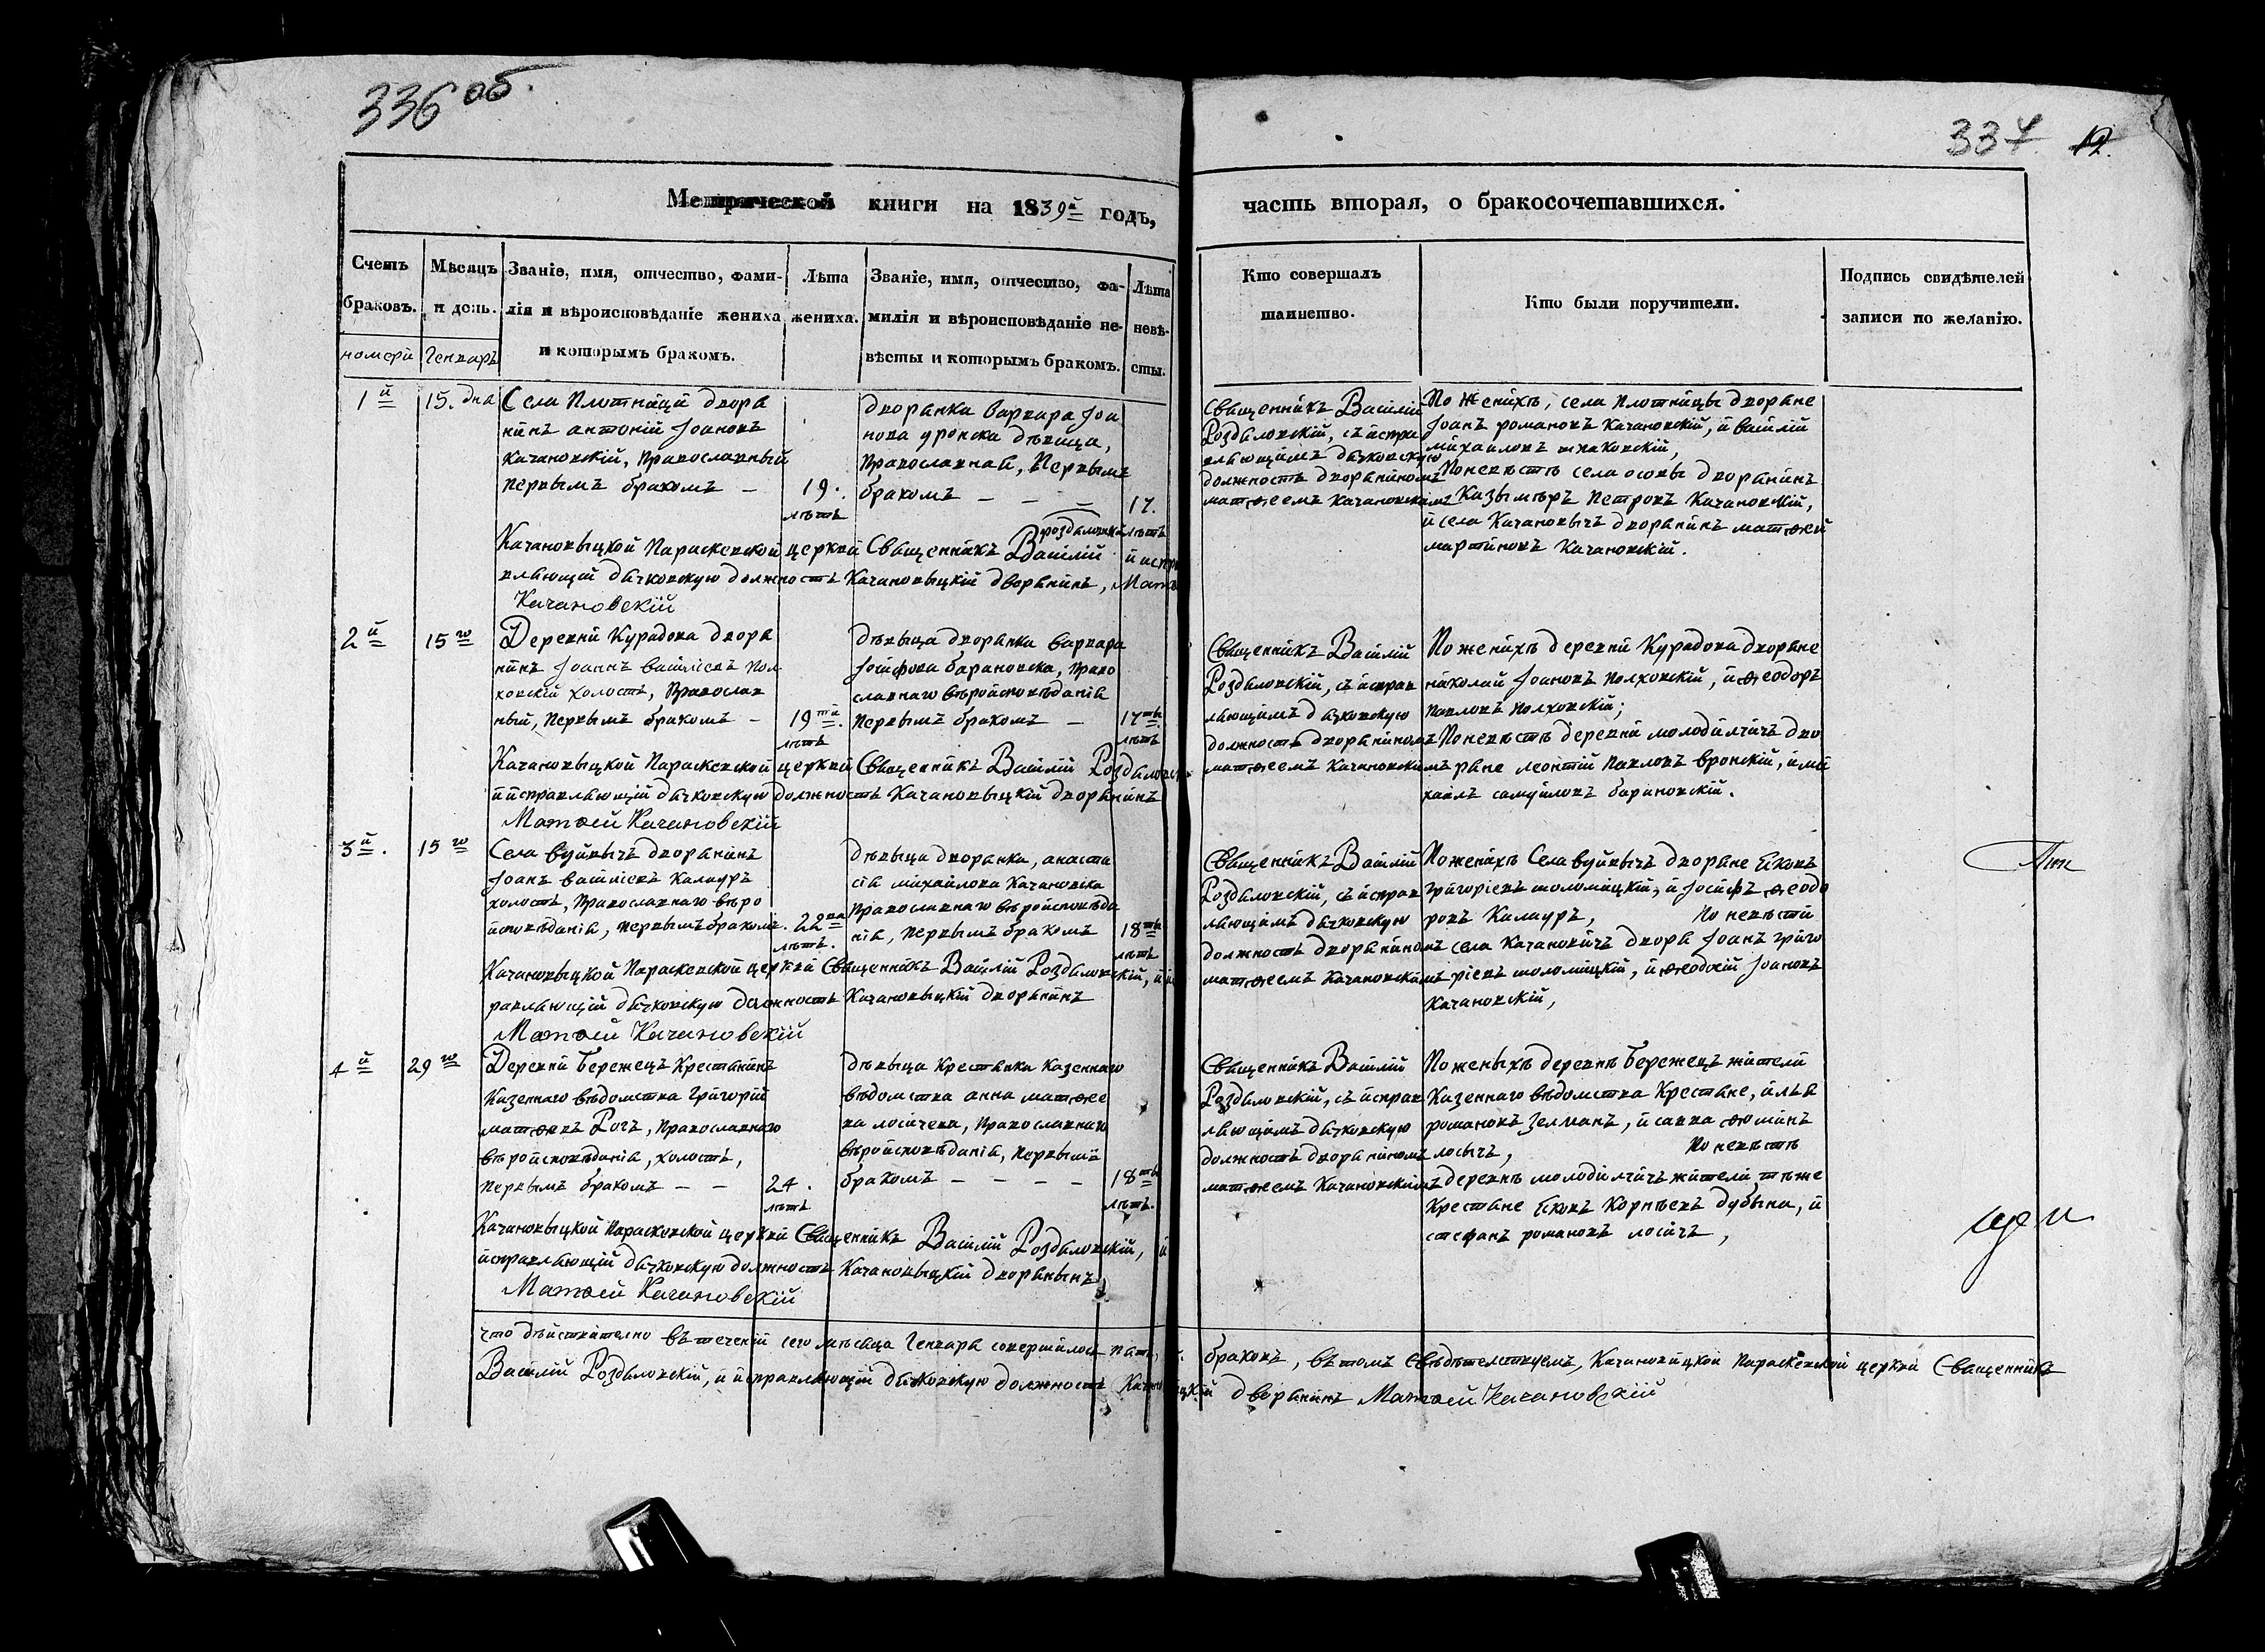 336 об.
337. 12.
Метрической книги на 1839й годъ, часть вторая, о бракосочетавшихся.
Счетъ браковъ.
номери
Мѣсяцъ и день.
Генварь
Званіе, имя, отчество, фами-
лія и вѣроисповѣданіе жениха
и которымъ бракомъ.
Лѣта
жениха.
Званіе, имя, отчество, фа-
милія и вѣроисповѣданіе не-
вѣсты и которымъ бракомъ.
Лѣта
невѣ-
сты.
Кто совершалъ
таинство.
Кто были поручители.
Подпись свидѣтелей
записи по желанію.
1й
15. дня
Села Плотницы дворя
нинъ антоній Іоановъ
Качановскій, Православный
первымъ бракомъ –
19.
лѣтъ
дворянка варвара Іоа
нова уронска дѣвица,
Православная, Первымъ
бракомъ – – –
17.
лѣтъ
Священникъ Василій
Роздяловскій, съ испра
вляющимъ дячковскую
должность дворяниномъ
матѳеемъ Качановскимъ
По женихѣ, села Плотницы дворяне
Іоанъ романовъ Качановскій, и василій
михаиловъ
По невѣстѣ села осовы дворянинъ
Казымѣръ Петровъ Качановскій,
и села Качановычъ дворянинъ матѳей
мартиновъ Качановскій.
Качановыцкой Параскевской церкви Священникъ Василій Роздяловскій и испра
вляющій дячковскую должность Качановыцкій дворянинъ, Мат
Качановскій
2й
15го
Деревни Курадова дворя
нинъ Іоаннъ василіевъ Пол
ховскій холостъ, Православ
ный, первымъ бракомъ –
19ти.
лѣтъ
дѣвыца дворянка варвара
Іосифова барановска, Право
славнаго вѣроисповѣданія
первымъ бракомъ –
17ть
лѣтъ
Священникъ Василій
Роздяловскій, съ исправ
ляющимъ дячковскую
должность дворяниномъ
матѳеемъ Качановскимъ
По женихѣ деревни Курадова дворяне
николай Іоановъ Полховскій, и ѳеодоръ
Павловъ Полховскій;
По невѣстѣ деревни молодилчичъ дво
ряне леонтій Павловъ вронскій, и ми
хаилъ самуиловъ барановскій.
Качановыцкой Параскевской церкви Священникъ Василій Роздяловскій
и исправляющій дячковскую должность Качановыцкій дворянинъ
Матѳей Качановскій
3й.
15го
Села вуйвычъ дворянинъ
Іоанъ василіевъ Калауръ
холостъ, Православнаго вѣро
исповѣданія, первымъ бракомъ.
22ва
лѣтъ.
дѣвыца дворянка, анаста
сія михайлова Качановска
Православнаго вѣроисповѣда
нія, первымъ бракомъ
18ть
лѣтъ
Священникъ Василій
Роздяловскій, съ исправ
ляющимъ дячковскую
должность дворяниномъ
матѳеемъ Качановскимъ
По женихѣ Села вуйвычъ дворяне Яковъ
григоріевъ толомицкій, и Іосифъ ѳеодо
ровъ Калауръ, По невѣсти
села Качановичъ дворя Іоанъ григо
ріевъ толомицкій, и ѳеодосій Іоановъ
Качановскій,
Пин
Качановыцкой Параскевской церкви Священникъ Василій Роздяловскій, и исп
равляющій дячковскую должность Качановыцкій дворянинъ
Матѳей Качановскій
4й
29го
Деревни Бережецъ Крестянинъ
Казеннаго вѣдомства Григорій
матѳеевъ Рогъ, Православнаго
вѣроисповѣданія, холостъ,
первымъ бракомъ – –
24.
лѣтъ
дѣвыца Крестянка Казеннаго
вѣдомства анна матѳее
ва лосичева, Православнаго
вѣроисповѣданія, первымъ
бракомъ – – – –
18ть
лѣтъ.
Священникъ Василій
Роздяловскій, съ исправ
ляющимъ дячковскую
должность дворяниномъ
матѳеемъ Качановскимъ
По женыхѣ деревнѣ бережецъ жители
Казеннаго вѣдомства Крестяне, илья
романовъ Зелманъ, и савва ѳоминъ
лосычъ, По невѣстѣ
деревнѣ молодилчичъ жители тѣже
Крестяне Яковъ Корнѣевъ дубына, и
стефанъ романовъ лосичъ,
Качановыцкой Параскевской церкви Священникъ Василій Роздяловскій, и
исправляющій дячковскую должность Качановыцкій дворянынъ
Матѳей Качановскій
что дѣйствително въ теченіи сего мѣсяца Генваря совершилось пять, браковъ, въ томъ Свѣдѣтелствуемъ, Качановицкой Параскевской церкви Священникъ
Василій Роздяловскій, и исправляющій дячковскую должность Качановицкій дворянинъ Матѳей Качановскій